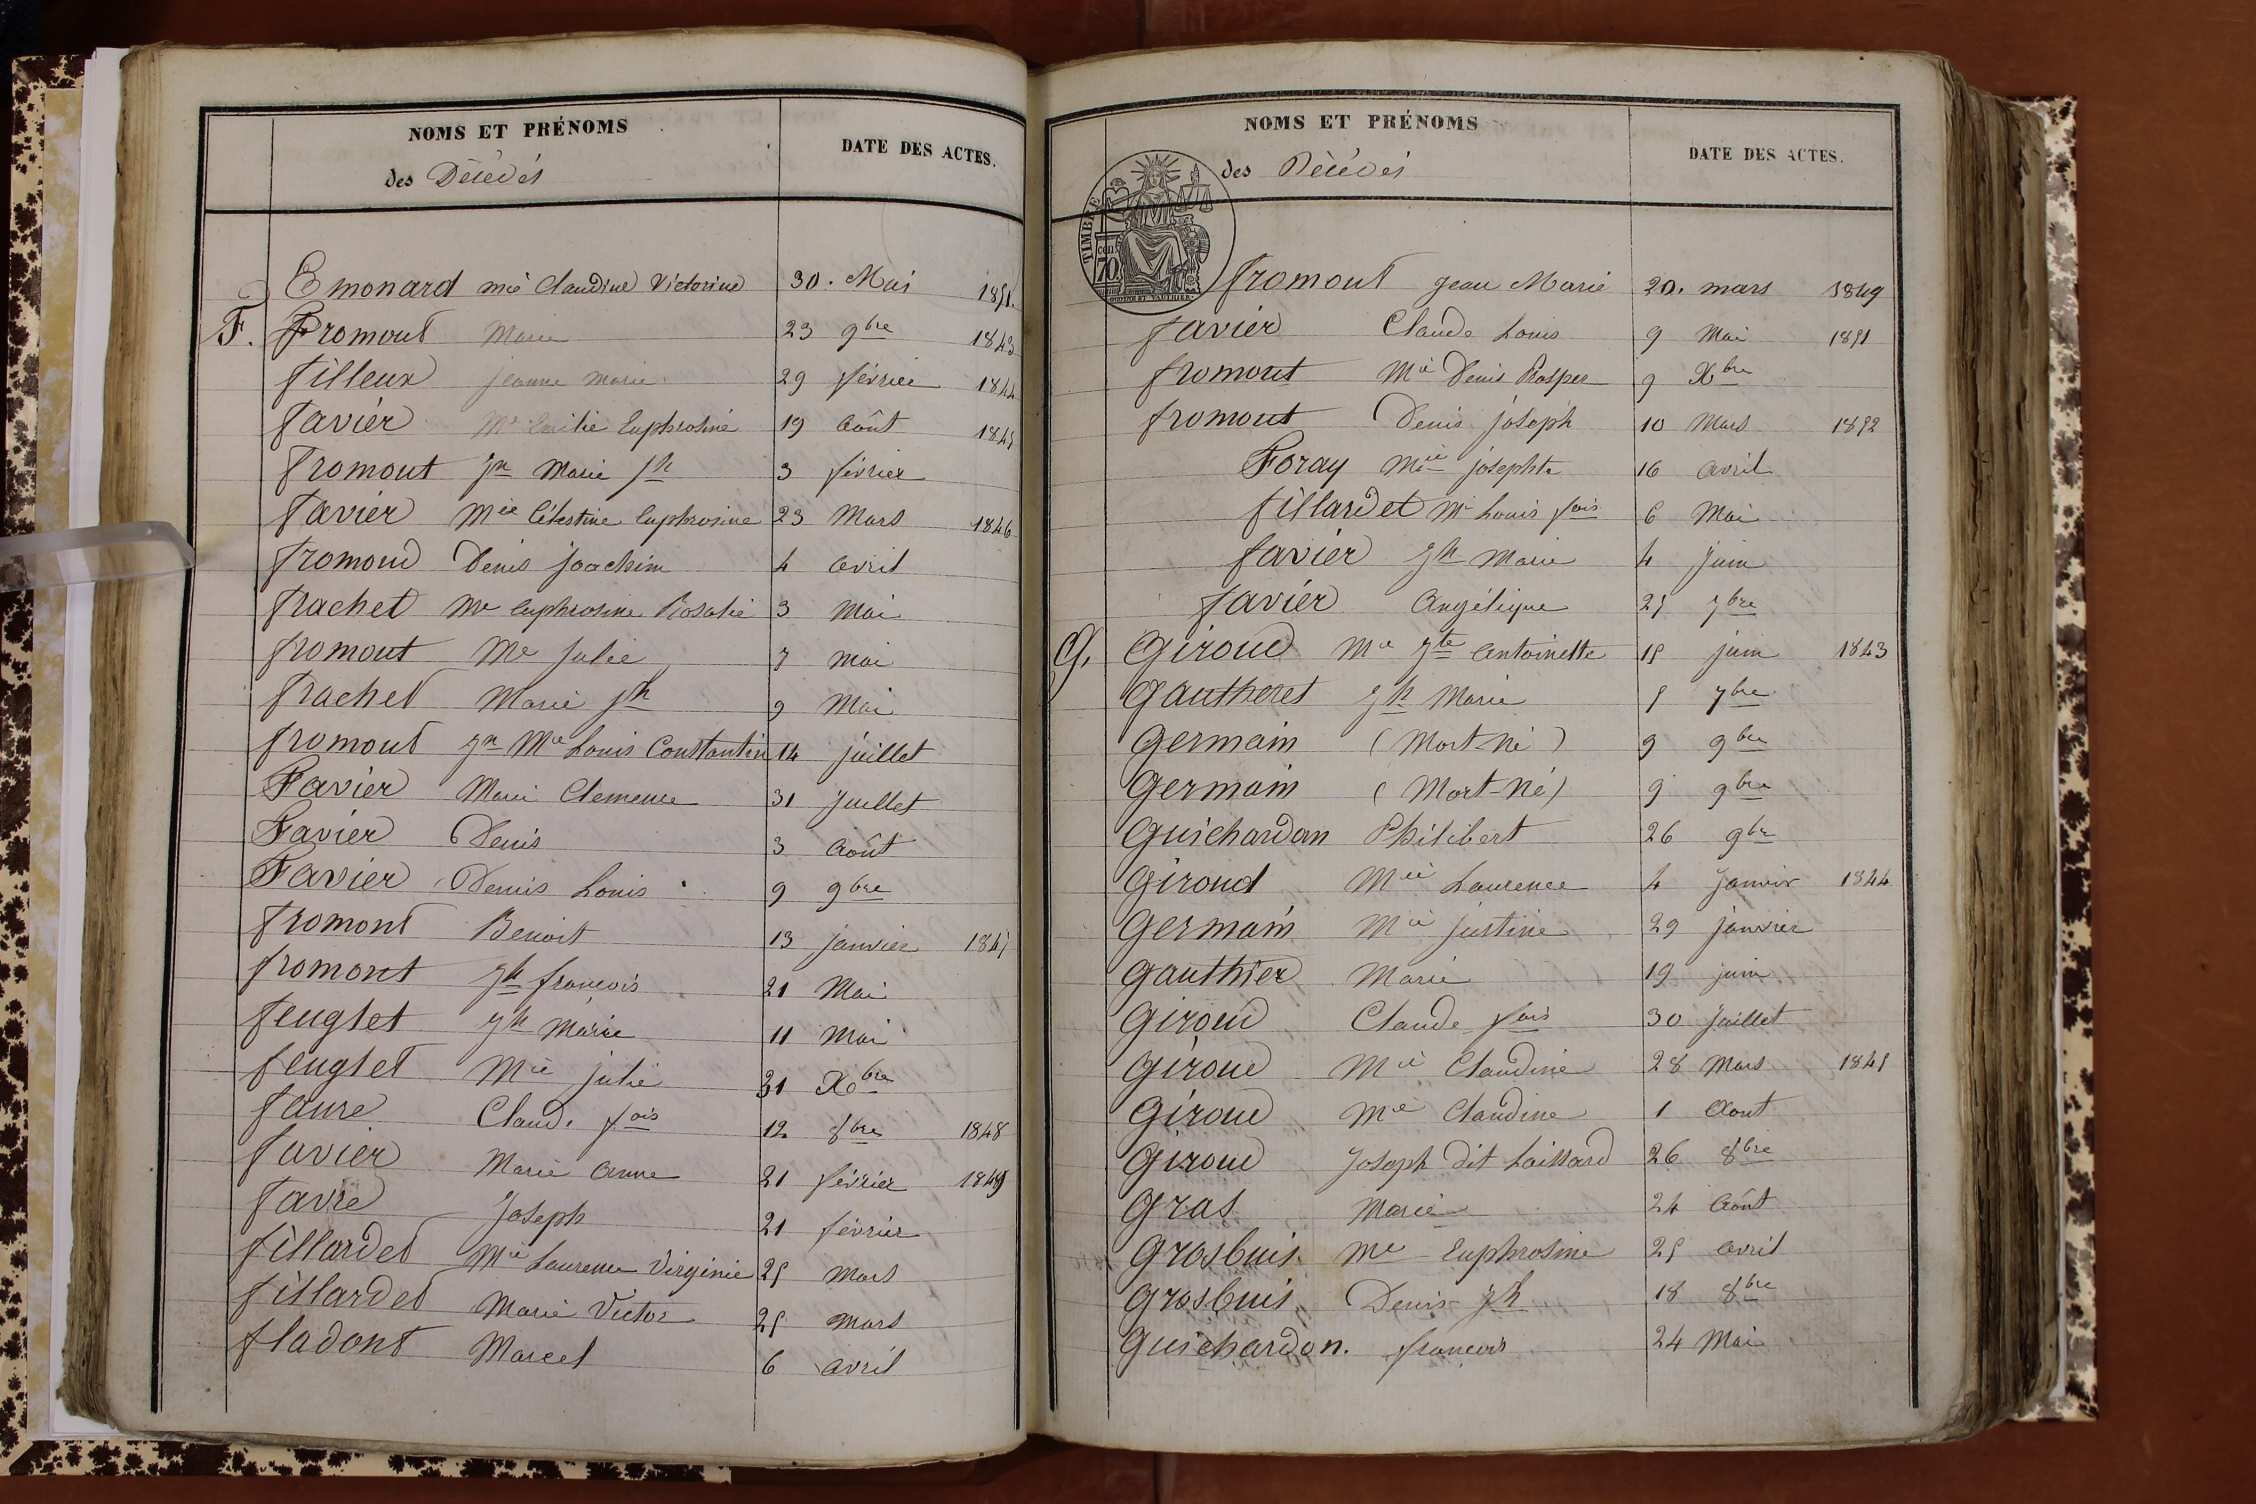 NOMS ET PRÉNOMS
des Décédés
DATE DES ACTES.
Emonard mie Claudine Victorine 30. Mai 1851.
F. Fromont Marie 23 9bre 1843
filleux jeanne marie 29 février 1844
favier Me Emilie Euphrosine 19 Août 1845
fromont Jn Marie Jh 3 février
favier Mie Célestine Euphrosine 23 Mars 1846
fromond Denis joachim 4 avril
frachet Me Euphrosine Rosalie 3 Mai
fromont Me Julie 7 mai
frachet Marie Jh 9 Mai
fromont Jn Mie Louis Constantin 14 juillet
Favier Marie Clemence 31 Juillet
Favier Denis 3 Août
Favier Denis Louis 9 9bre
fromont Benoit 13 janvier 1847
fromont Jh françois 21 Mai
feuglet Jh Marie 11 Mai
feuglet Mie julie 31 Xbre
faure Claude fois 12 8bre 1848
favier Marie Anne 21 février 1849
favre Joseph 21 février
fillardet Mie Laurence Virginie 25 Mars
fillardet Marie Victor 25 mars
fladont Marcel 6 avril
NOMS ET PRÉNOMS
des Décédés
DATE DES ACTES.
TIMBRE
70
fromont Jean Marie 20. mars 1849
favier Claude Louis 9 Mai 1851
fromont Mie Denis Prosper 9 Xbre
fromont Denis joseph 10 Mars 1852
Foray Mie josephte 16 avril
fillardet Me Louis fois 6 Mai
favier Jh Marie 4 Juin
favier Angélique 25 7bre
G. Giroud Mie Jte Antoinette 15 juin 1843
Gautheret Jh Marie 5 7bre
Germain (Mort-Né) 9 9bre
Germain (Mort-Né) 9 9bre
Guichardon Philibert 26 9bre
Giroud Mie Laurence 4 Janvier 1844
Germain Mie Justine 29 janvier
Gauthier Marie 19 juin
Giroud Claude fois 30 Juillet
Giroud Mie Claudine 28 Mars 1845
Giroud Mie Claudine 1 Aout
Giroud Joseph dit Laissard 26 8bre
Gras Marie 24 Août
Grosbuis Me Euphrosine 25 avril
Grosbuis Denis Jh 18 8bre
Guichardon. françois 24 Mai